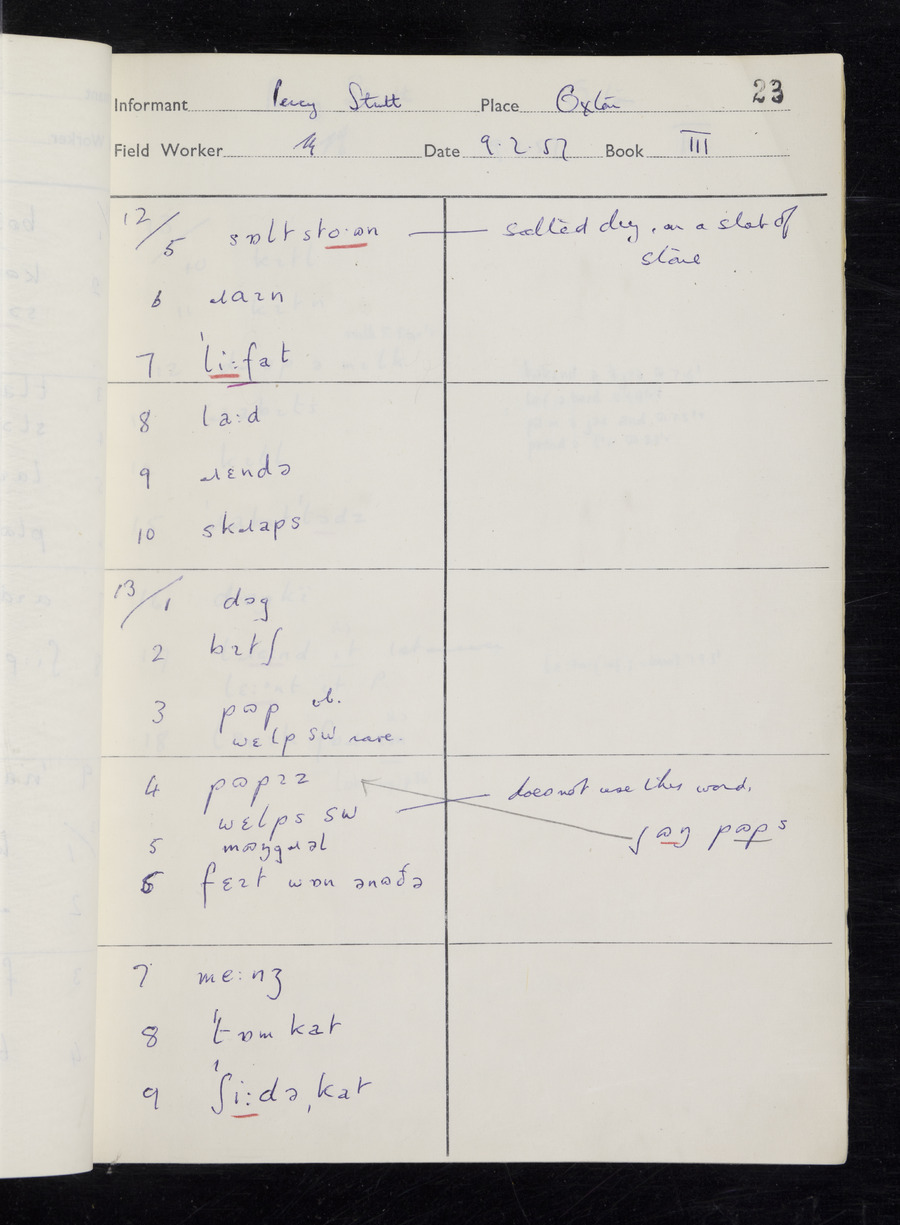 23
Informant Percy Stutt Place Oxton
Field Worker Date 9.2.57 Book III
12/5 sɒlt sto:ən — salted dry, on a slab of
stone
6 ɹaɪn
7 ˈli:fat
8 la:d
9 ɹɛndə
10 skɹaps
13/1 dɒg
2 bɪtʃ
3 pʊp
wɛlp SW rare.
4 pʊpɪz
wɛlps SW — does not use this word.
jʊŋ pʊps
5 mʊŋgɹəl
6 fɛɪt wɒn ənʊðə
7 me:nʒ
8 ˈtɒm kat
9 ˈʃi:dəˌkat